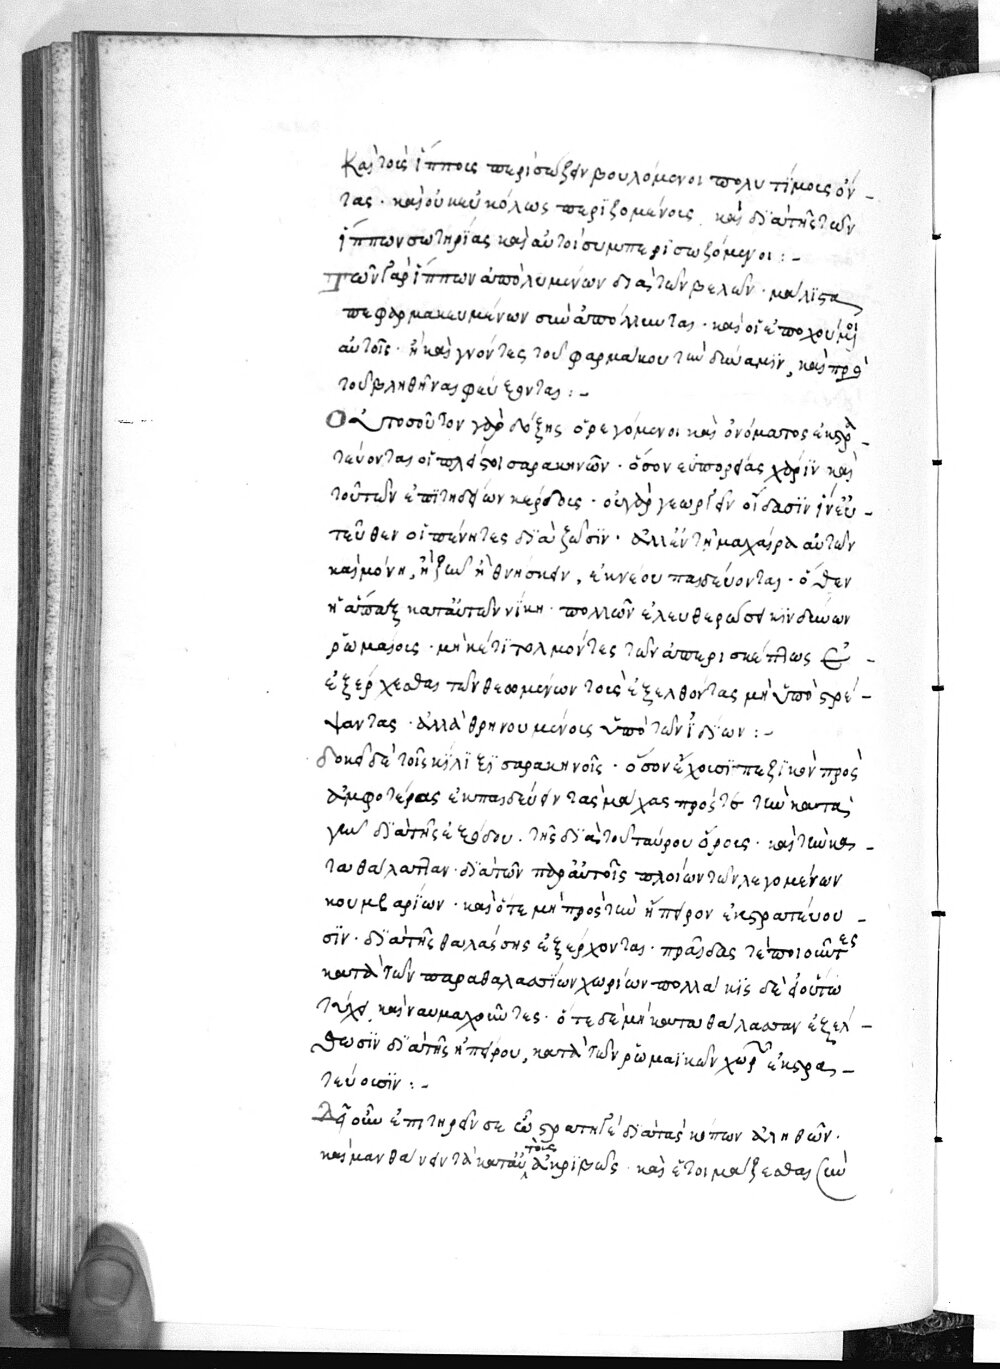 καὶ τοὺς ἵππους περισώζειν βουλόμενοι πολυτίμους ὄν-
τας· καὶ οὐκ εὐκόλως ποριζομένους καὶ διὰ τῆς τῶν
ἵππων σωτηρίας καὶ αὐτοὶ συμπερισωζόμενοι:-
Τῶν γὰρ ἵππων ἀπολυμένων διὰ τῶν βελῶν· μάλιστα
πεφαρμακευμένων συναπόλλυνται· καὶ οἱ ἐποχούμενοι
αὐτοῖς· ἢ καὶ γνόντες τοῦ φαρμάκου τὴν δύναμιν, καὶ πρὸ
τοῦ βληθῆναι φεύξονται:-
Οὐ τοσοῦτον γὰρ δόξης ὀρεγόμενοι καὶ ὀνόματος ἐκστρα-
τεύονται οἱ πλείστοι σαρακηνῶν· ὅσον εὐπορίας χάριν καὶ
τούτων ἐπιτηδείων κέρδους· οὐ γὰρ γεωργεῖν οἴδασιν ἵν' ἐν-
τεῦθεν οἱ πένητες διαζῶσιν· ἀλλ' ἐν τῇ μαχαίρᾳ αὐτῶν
καὶ μόνῃ, ἢ ζῆν ἢ θνήσκειν, ἐκ νέου παιδεύονται· ὅθεν
ἡ ἅπαξ κατ' αὐτῶν νίκη· πολλῶν ἐλευθερώσει κινδύνων
ῥωμαίους· μηκέτι τολμόντες τῶν ἀπερισκέπτως
ἐξέρχεσθαι τῶν θεωμένων τοὺς ἐξελθόντας μὴ ὑποστρέ-
ψαντας· ἀλλὰ θρηνουμένους ὑπὸ τῶν ἰδίων:-
δοκεῖ δὲ τοῖς κίλιξι σαρακηνοῖς· ὅσον ἔχουσι πεζικὸν πρὸς
ἀμφοτέρας ἐκπαιδεύειν τὰς μάχας πρός τε τὴν κατὰ
γῆν διὰ τῆς ἐξόδου· τῆς διὰ τοῦ ταύρου ὄρους· καὶ τὴν κα-
τα θάλατταν· διὰ τῶν παρ' αὐτοῖς πλοίων τῶν λεγομένων
κουμβαρίων· καὶ ὅτε μὴ πρὸς τὴν ἤπειρον ἐκστρατεύου-
σιν· διὰ τῆς θαλάσσης ἐξέρχονται· πραίδας τε ποιοῦντες
κατὰ τῶν παραθαλασσίων χωρίων πολλάκις δὲ εἰ οὕτω
τύχει καὶ ναυμαχοῦντες· ὅτε δὲ μὴ κατα θάλασσαν ἐξέλ-
θωσιν διὰ τῆς ἠπείρου, κατὰ τῶν ῥωμαϊκῶν χωρίων ἐκστρα-
τεύουσιν:-
Δεῖ οὖν ἐπιτηρεῖν σε ὦ στρατηγέ διὰ κατασκόπων ἀληθῶν·
καὶ μανθάνειν τὰ κατ' αὐτοὺς ἀκριβῶς· καὶ ἑτοιμάζεσθαι σὺν